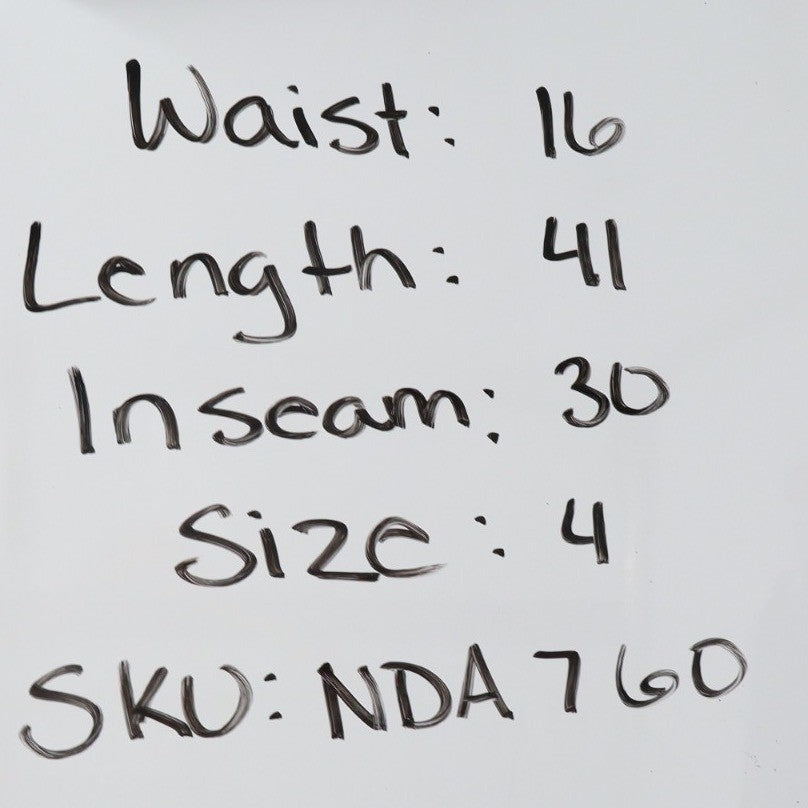 Waist: 16
Length: 41
Inseam: 30
Size: 4
SKU: NDA 760